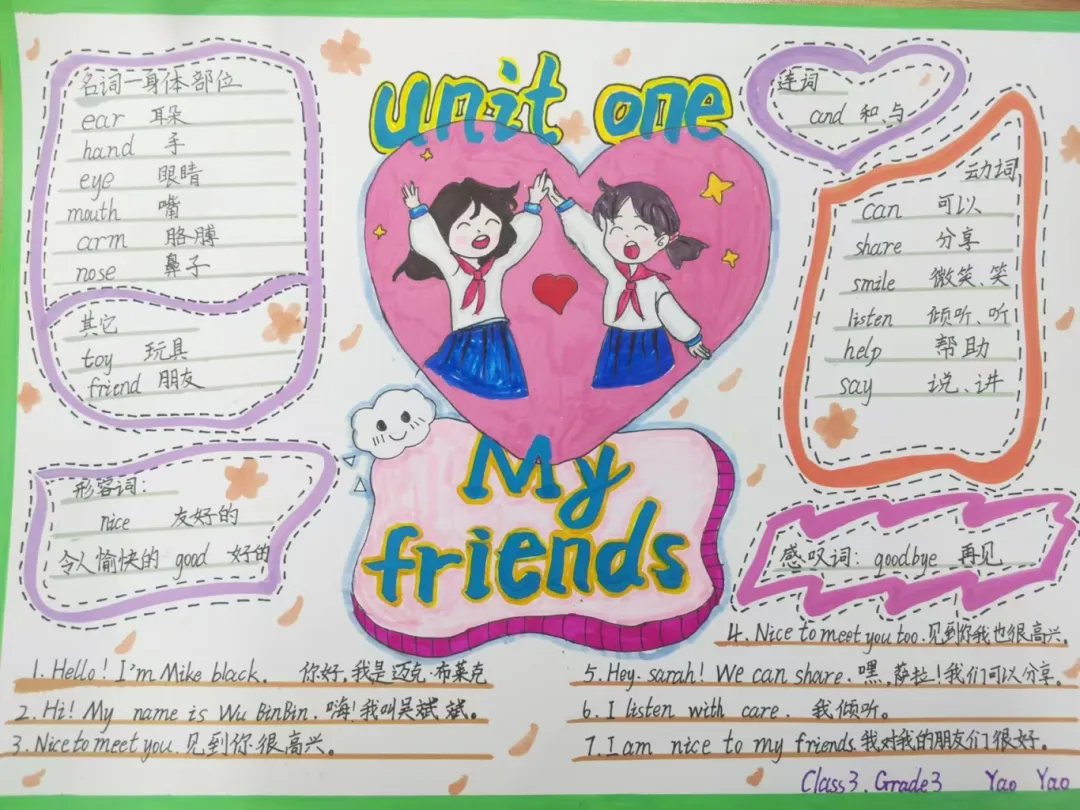 unit one
My
friends
名词一身体部位
ear 耳朵
hand 手
eye 眼睛
mouth 嘴
arm 胳膊
nose 鼻子
其它
toy 玩具
friend 朋友
形容词:
nice 友好的
令人愉快的 good 好的
连词
and 和、与
动词
can 可以
share 分享
smile 微笑、笑
listen 倾听、听
help 帮助
say 说、讲
感叹词: goodbye 再见
1. Hello! I'm Mike black. 你好,我是迈克·布莱克
2. Hi! My name is Wu BinBin. 嗨!我叫吴斌斌。
3. Nice to meet you. 见到你很高兴。
4. Nice to meet you too. 见到你我也很高兴。
5. Hey. sarah! We can share. 嘿,萨拉!我们可以分享。
6. I listen with care. 我倾听。
7. I am nice to my friends. 我对我的朋友们很好。
Class3. Grade3 Yao Yao